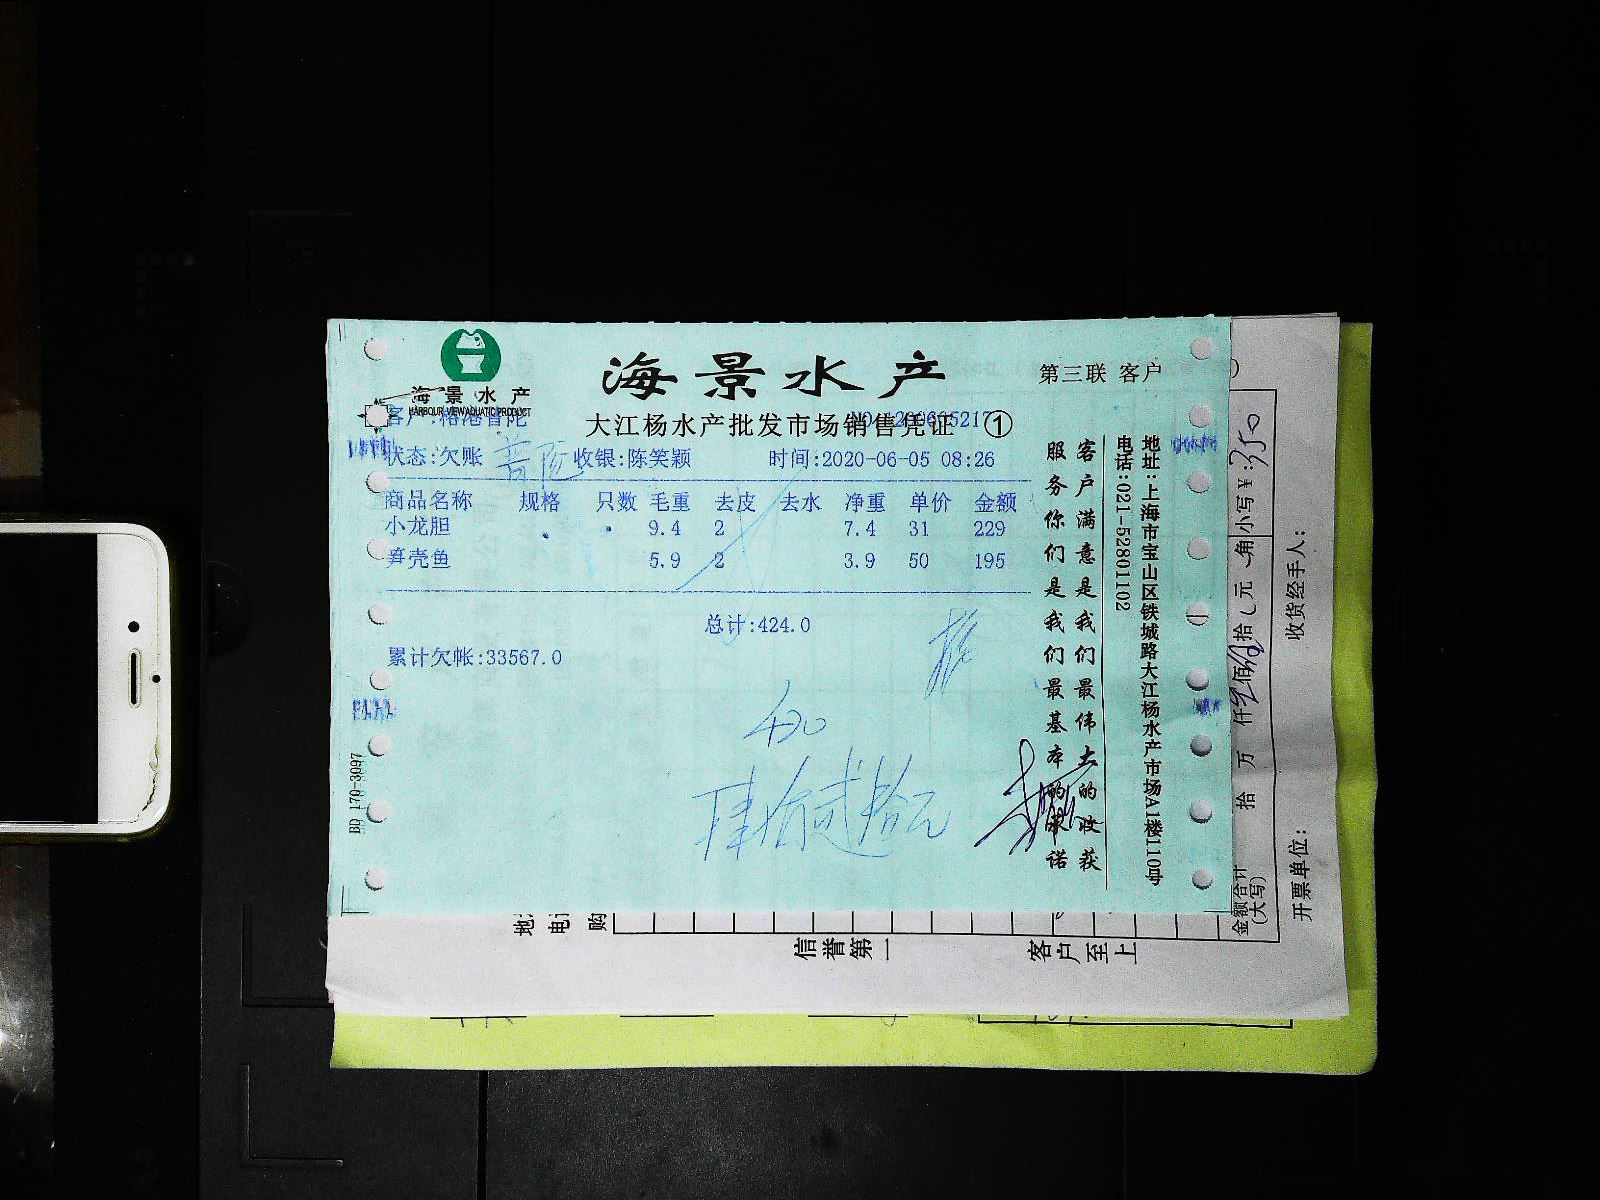 海景水产
HARBOUR VIEW AQUATIC PRODUCT
海景水产
第三联 客户
大江杨水产批发市场销售凭证 ①
状态:欠账 普陀 收银:陈笑颖 时间:2020-06-05 08:26
商品名称 规格 只数 毛重 去皮 去水 净重 单价 金额
小龙胆 9.4 2 7.4 31 229
笋壳鱼 5.9 2 3.9 50 195
总计:424.0
累计欠帐:33567.0
420
肆佰贰拾元
客户满意是我们最伟大的收获
服务你们是我们最基本的承诺
地址:上海市宝山区铁城路大江杨水产市场A1楼110号
电话:021-52801102
BD 170-3097
小写¥:350
金额合计
(大写)
拾 万 仟 佰 拾 元 角
收货经手人:
开票单位:
信誉第一
客户至上
购